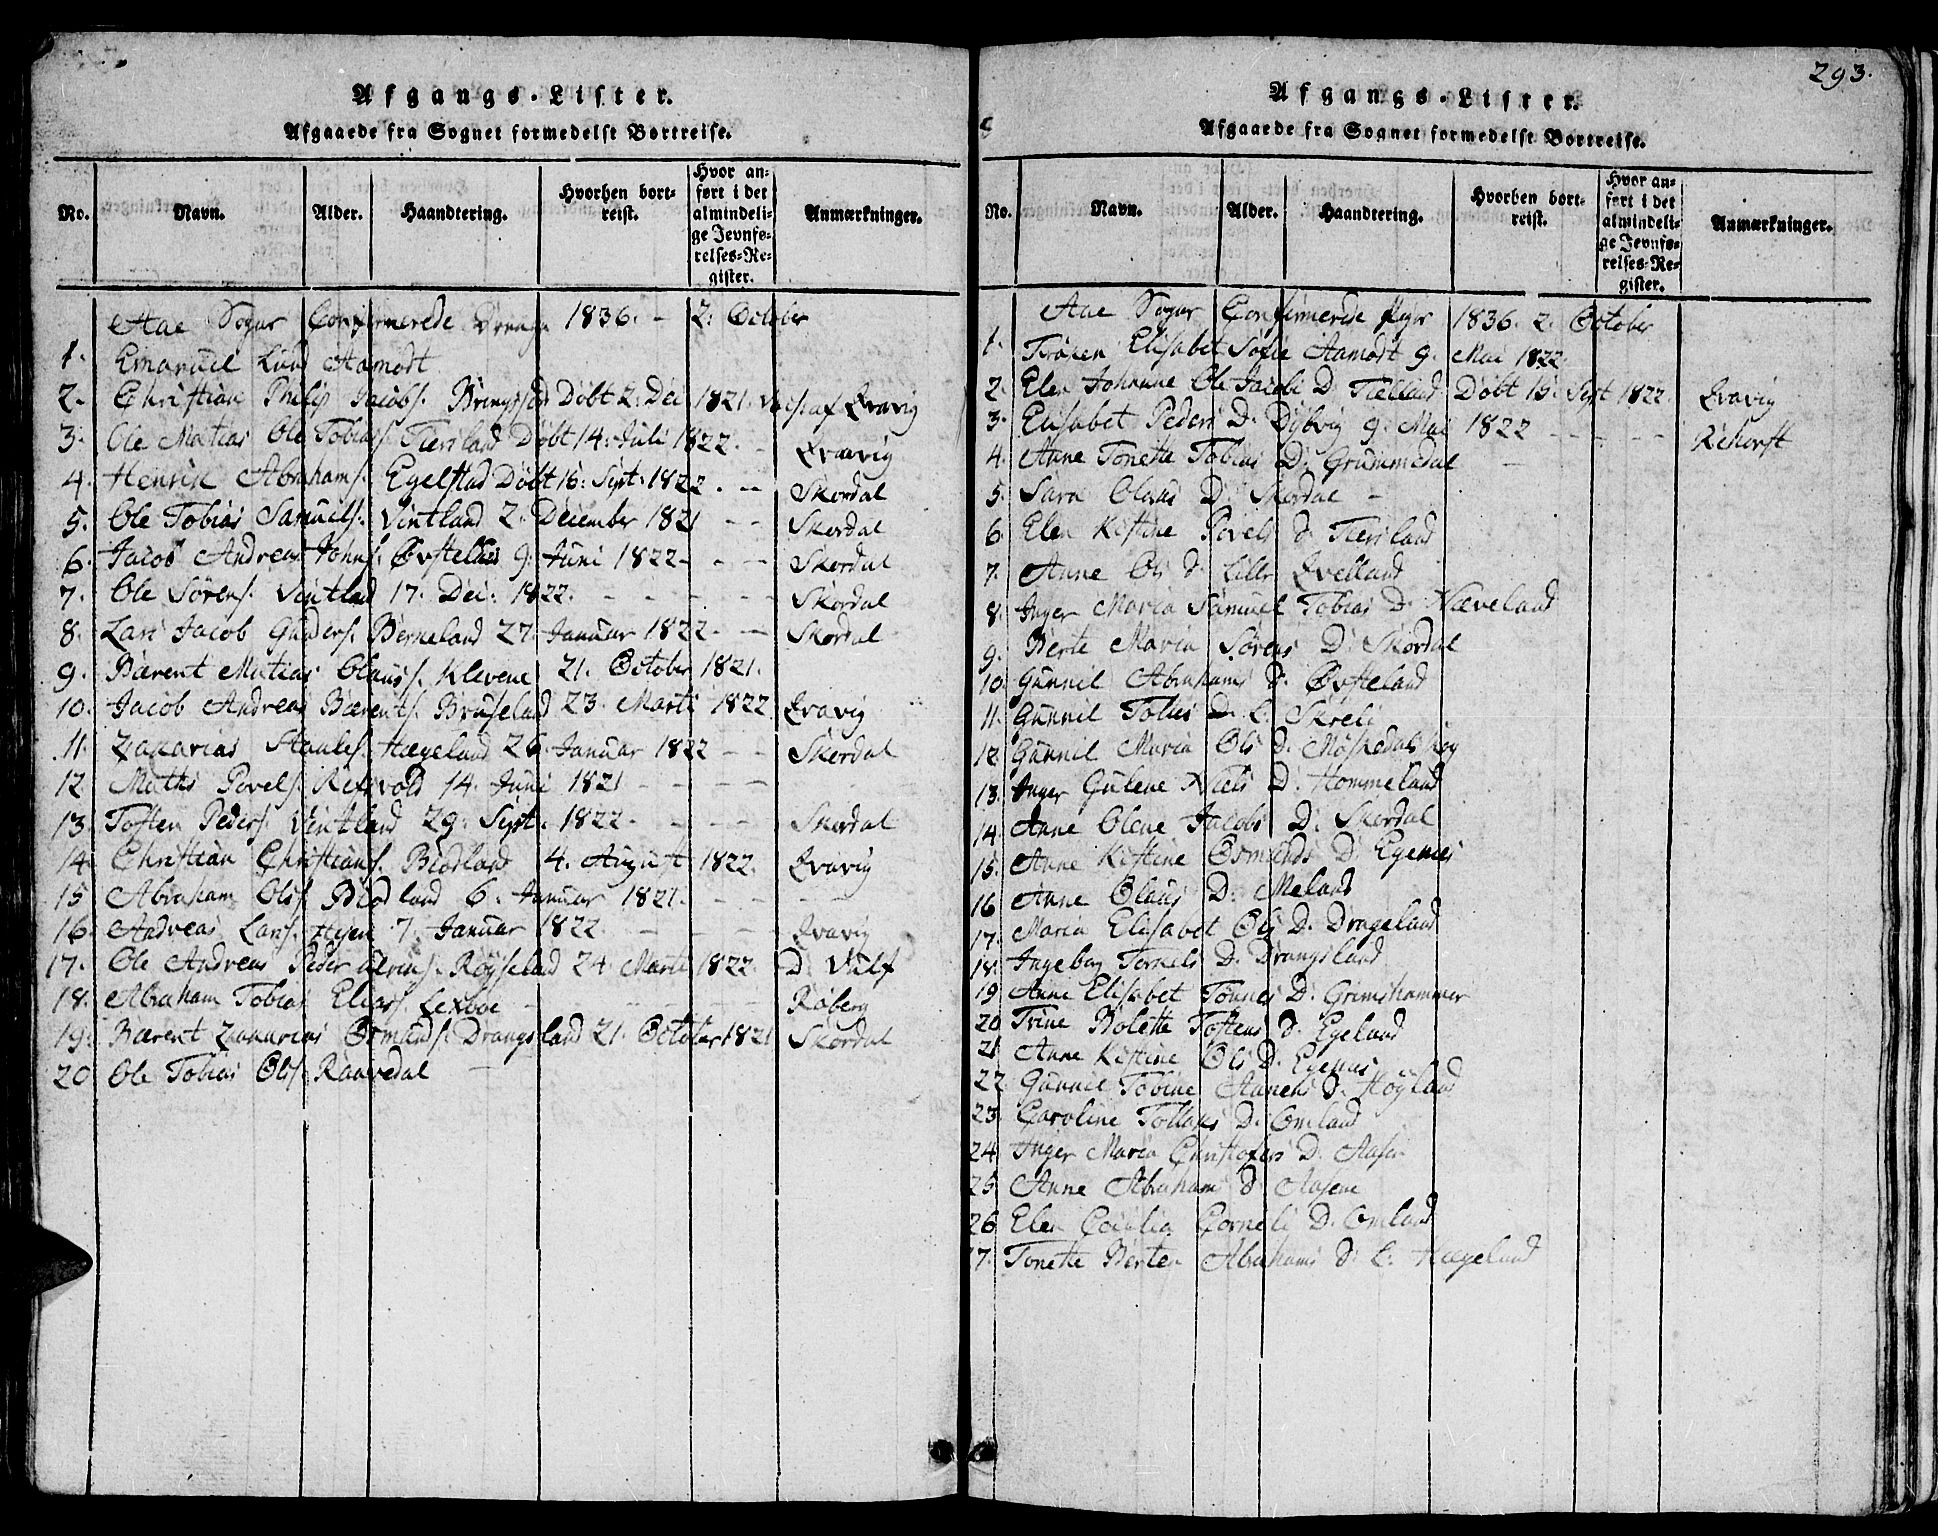 Afgangs-Lister.
Afgaaede fra Sognet formedelst Bortreise.
No. Navn. Alder. Haandtering. Hvorhen bortreist. Hvor anført i det almindelige Jevnførelses-Register. Anmærkninger.
Aae Sogns Confirmerede Drenge 1836. - 2. October
1. Emanuel Lund Aamodt
2. Christian Philip Jacobs. Døbt 2. Dec 1821. af Qvavig
3. Ole Matias Ole Tobias. Tiersland Døbt 14. Juli 1822. - Qvavig
4. Henrik Abrahams. Egelstad Døbt 16. Sept. 1822. - - Skordal
5. Ole Tobias Samuels. Vintland 2. December 1821 - - Skordal
6. Jacob Andreas Johns. Øvsteland 9. Juni 1822 - - - Skordal
7. Ole Sørens. Vintland 17. Dec. 1822. - - - - - Skordal
8. Lars Jacob Gunders. Berneland 27. Januar 1822 - - Skordal
9. Bærent Matias Olaus. Klevene 21. October 1821.
10. Jacob Andreas Bærents. Bruseland 23. Marti 1822 Qvavig
11. Zakarias Staales. Hægeland 26. Januar 1822 - - Skordal
12. Mathis Povels. Refsvold 14. Juni 1821 - - - -
13. Tosten Peders. Vintland 29. Sept. 1822. - - - Skordal
14. Christian Christians. Biodland 4. August 1822. Qvavig
15 Abraham Ols. Biodland 6. Januar 1821. - - - -
16. Andreas Lars. 7. Januar 1822 - - - Qvavig
17. Ole Andreas Peder Røyseland 24. Marti 1822. D. Vulf
18. Abraham Tobias Elias. Lexboe - - - - - Raberg
19. Bærent Zakarias Osmunds. Drangsland 21. October 1821 Skordal
20 Ole Tobias Ols. Raavedal -
293.
Afgangs-Lister.
Afgaaede fra Sognet formedelst Bortreise.
No. Navn. Alder. Haandtering. Hvorhen bortreist. Hvor anført i det almindelige Jevnførelses-Register. Anmærkninger.
Aae Sogns Confirmerede Piger 1836. 2. October
1. Elisabet Sofie Aamodt 9. Mai 1822.
2. Elen Johanne Ole Jacobs D. Tielland Døbt 15. Sept 1822. Qvavig
3. Elisabet Peders D. Dybvig 9. Mai 1822 - - - - Rehorst
4. Anne Tonette Tobias D. Grummedal -
5. Sara Olaus D. Skordal -
6. Elen Kistine Povels d. Tiersland
7. Anne Ols d. Lille Qvelland
8. Inger Maria Samuel Tobias D. Næveland
9. Berte Maria Sørens D. Skordal
10. Gunnil Abrahams d. Øvsteland
11. Gunnil Tobias D. L. Skreli
12 Gunnil Maria Ols D.
13. Inger Gulene Niels D. Hommeland
14. Anne Olene Jacobs D. Skordal
15. Anne Kistine Osmunds D. Egenes
16 Anne Olaus D. Meland
17. Maria Elisabet Ols D. Drageland
18. Ingebog Terkels D. Drangsland
19 Anne Elisabet Tønnes D. Grimshammer
20 Trine Bolette Tostens d. Egeland
21 Anne Kistine Ols D. Egenes
22 Gunnil Tobine d. Høyland
23 Caroline Tollaks D. Omland
24 Inger Maria Christofers D.
25. Anne Abrahams d. Aasene
26 Elen Cecilia Cornels D. Omland
7. Tonette Berten Abrahams d. L. Hægeland